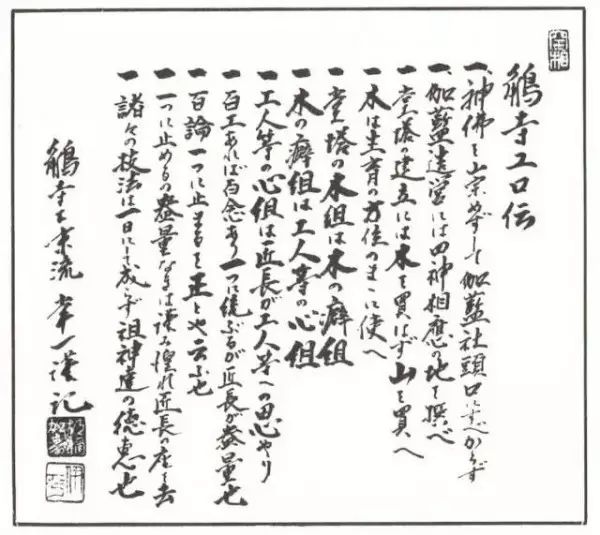 鵤寺工口伝
一、神佛を崇めずして伽藍社頭口にすべからず
一、伽藍造営には四神相應の地を撰べ
一 堂塔建立には木を買はず山を買へ
一 木は生育の方位のまゝに使へ
一 堂塔の木組は木の癖組
一 木の癖組は工人等の心組
一 工人等の心組は匠長が工人等への思やり
一 百工あれば百念あり一つに統ぶるが匠長が器量也
一 百論一つに止まるを正とや云ふ也
一 一つに止めるの器量なきは謹み惶れ匠長の座を去
一 諸々の技法は一日にして成らず祖神達の徳恵也
鵤寺工末流 常一謹記